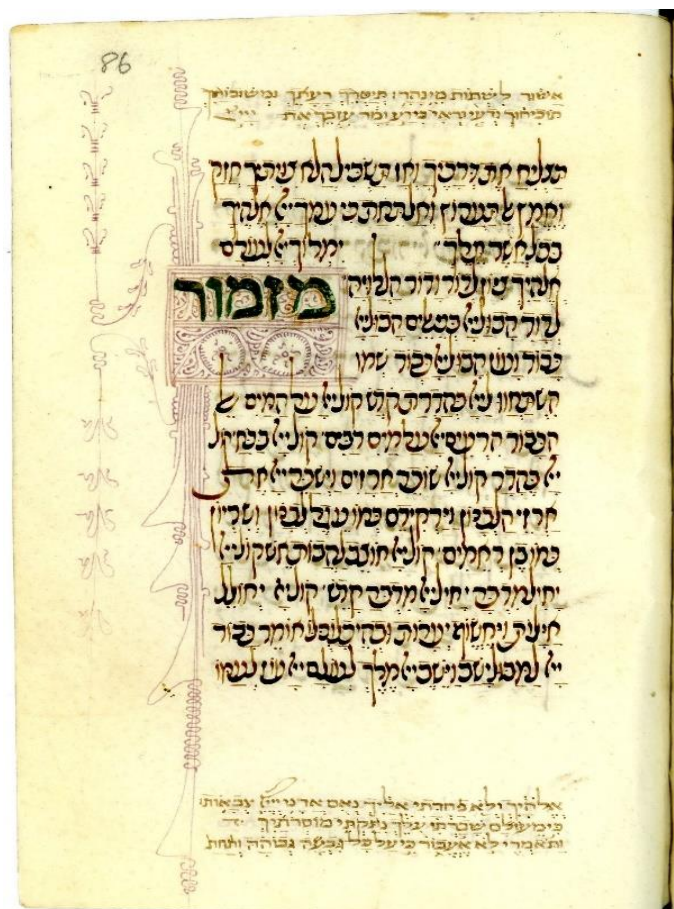 86
אשור לשתות מי נהר: תיסרך רעתך ומשובותיך
תוכיחוך ודעי וראי כי רע ומר עזבך את ייי
תצליח את דרכיך ואז תשכיל הלא צויתיך חזק
ואמץ אל תערוץ ואל תחת כי עמך ייא אלהיך
בכל אשר תלך ימלוך ייא לעולם
אלהיך ציון לדור ודור הללויה
מזמור
לדוד הבו לייא בני אלים הבו לייא
כבוד ועוז הבו לייא כבוד שמו
השתחוו לייא בהדרת קדש קול ייא על המים אל
הכבוד הרעים ייא על מים רבים קול ייא בכח קול
ייא בהדר קול ייא שובר ארזים וישבר ייא את
ארזי הלבנון וירקידם כמו עגל לבנון ושריון
כמו בן ראמים קול ייא חוצב להבות אש קול ייא
יחיל מדבר יחיל ייא מדבר קדש קול ייא יחולל
אילות ויחשוף יערות ובהיכלו כלו אומר כבוד
ייא למבול ישב וישב ייא מלך לעולם ייא עוז לעמו
אלהיך ולא פחדתי אליך נאם אדני ייי צבאות:
כי מעולם שברתי עלך נתקתי מוסרותיך
ותאמרי לא אעבור כי על כל גבעה גבוהה ותחת